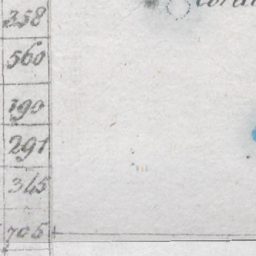 358
560
190
291
345
706